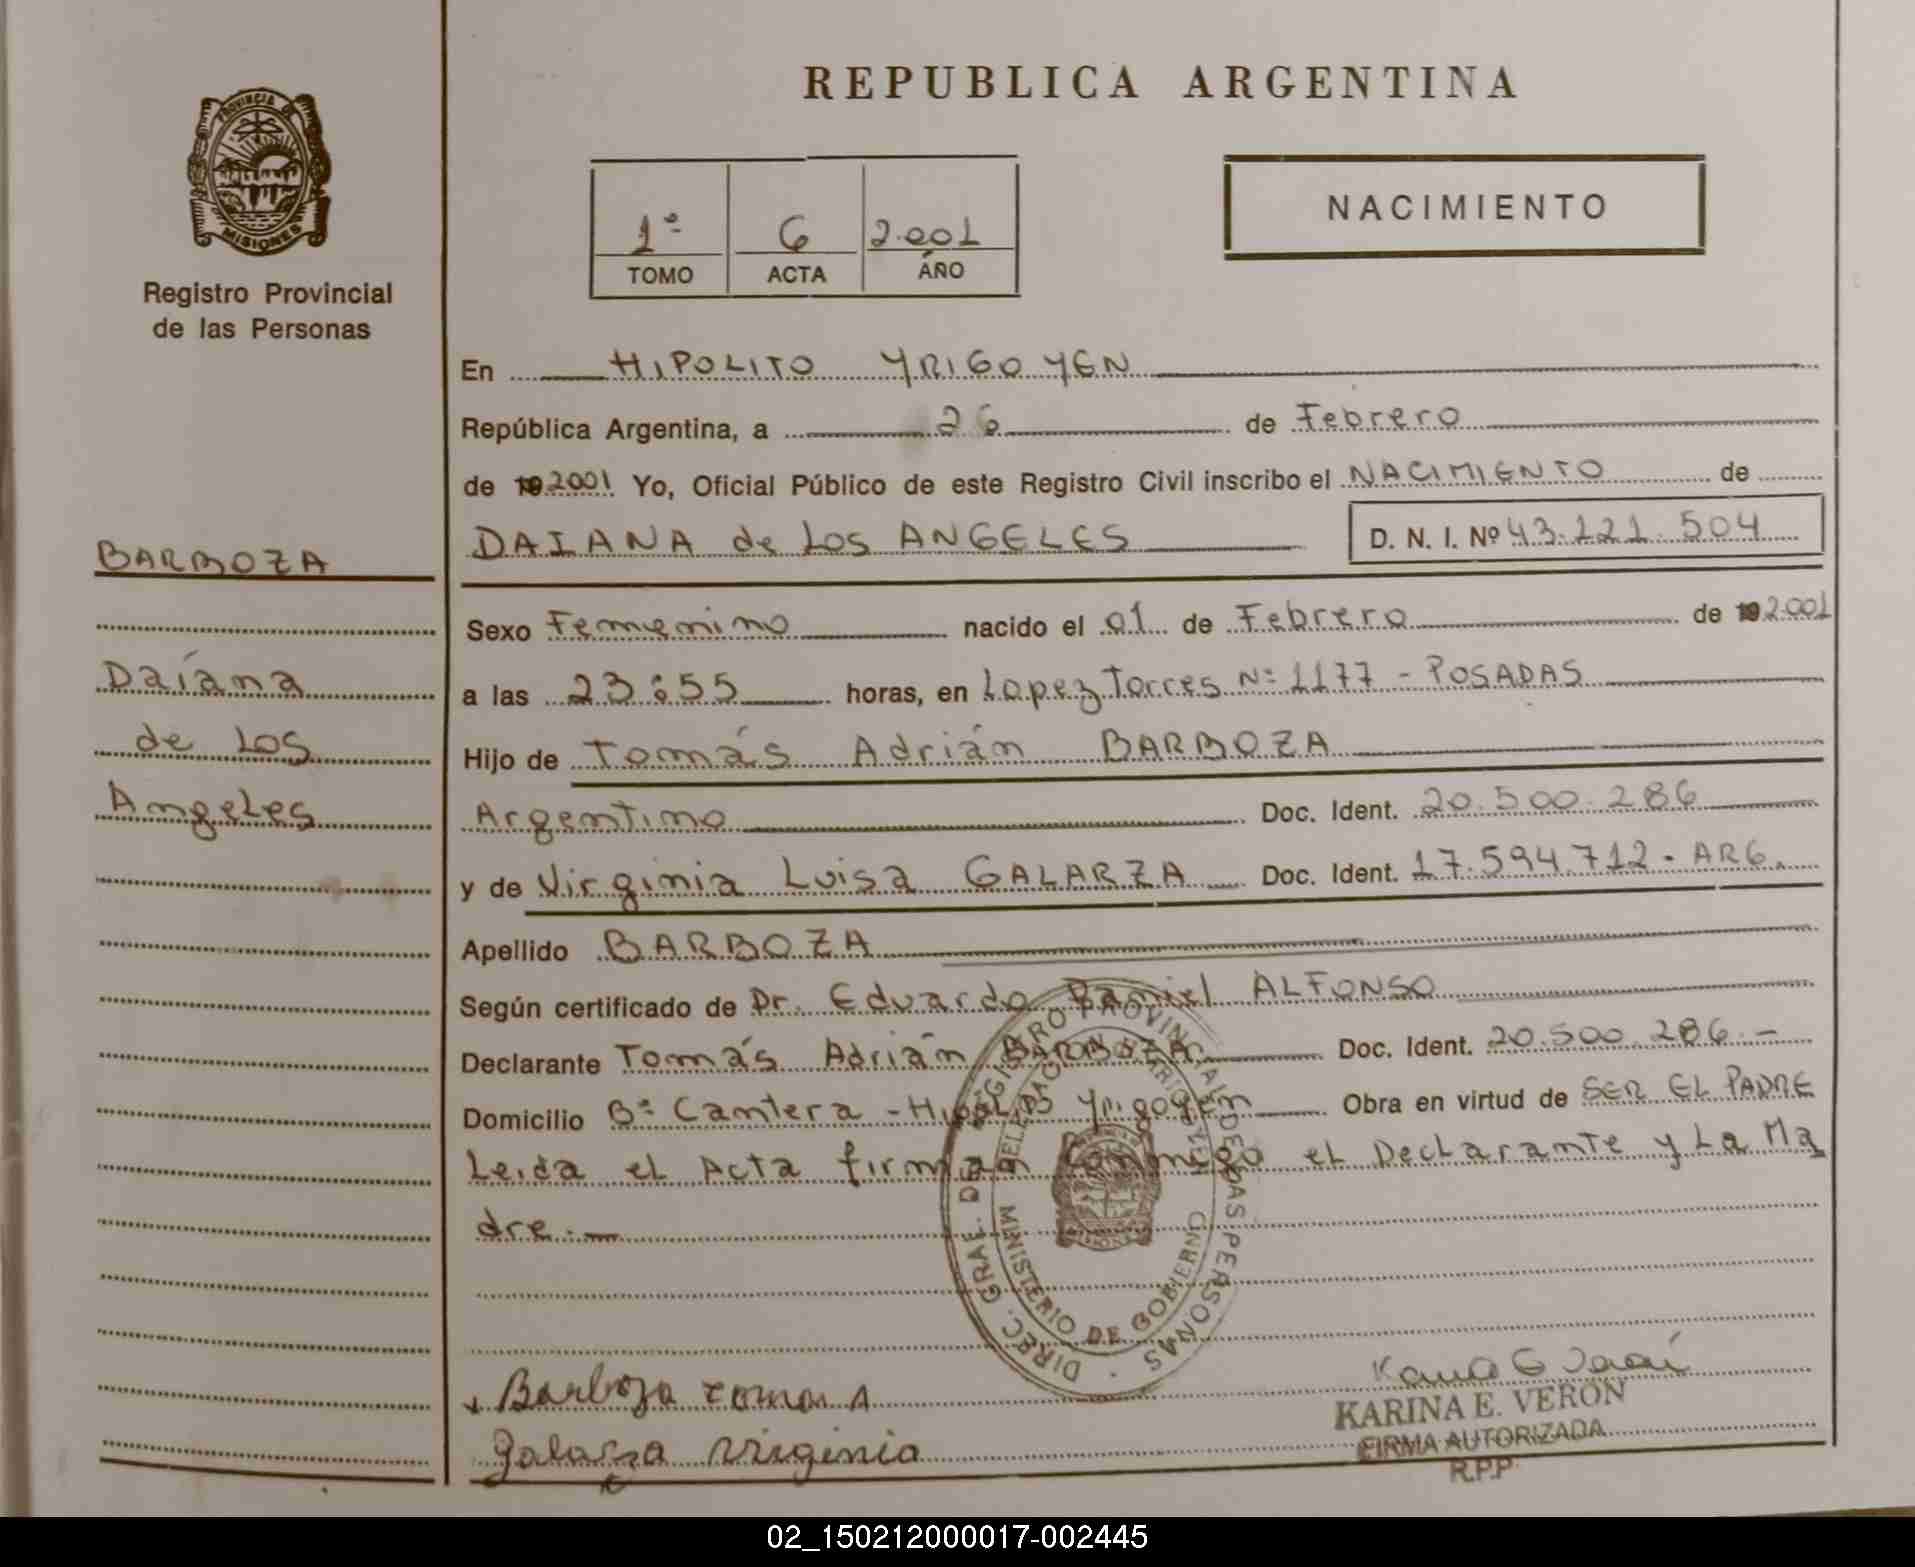 REPUBLICA ARGENTINA
PROVINCIA DE
MISIONES
Registro Provincial
de las Personas
1º 6 2.001
TOMO ACTA AÑO
NACIMIENTO
BARBOZA
Daíana
de Los
Angeles
En HIPOLITO YRIGOYEN
República Argentina, a 26 de Febrero
de 19 2001 Yo, Oficial Público de este Registro Civil inscribo el NACIMIENTO de
DAIANA de Los ANGELES D. N. I. Nº 43.121.504
Sexo Femenino nacido el 01 de Febrero de 19 2.001
a las 23:55 horas, en Lopez Torres Nº 1177 - POSADAS
Hijo de Tomás Adrián BARBOZA
Argentino Doc. Ident. 20.500.286
y de Virginia Luisa GALARZA Doc. Ident. 17.594.712. ARG.
Apellido BARBOZA
Según certificado de Dr. Eduardo Daniel ALFONSO
Declarante Tomás Adrián BARBOZA Doc. Ident. 20.500.286.-
Domicilio Bº Cantera - Hipolito Yrigoyen Obra en virtud de SER EL PADRE
Leida el Acta firman conmigo el Declarante y La Ma
dre.-
DIREC. GRAL. DEL REGISTRO PROVINCIAL DE LAS PERSONAS
MINISTERIO DE GOBIERNO
Barboza Tomas A
Galarza Virginia
KARINA E. VERON
FIRMA AUTORIZADA
R.P.P
02_150212000017-002445